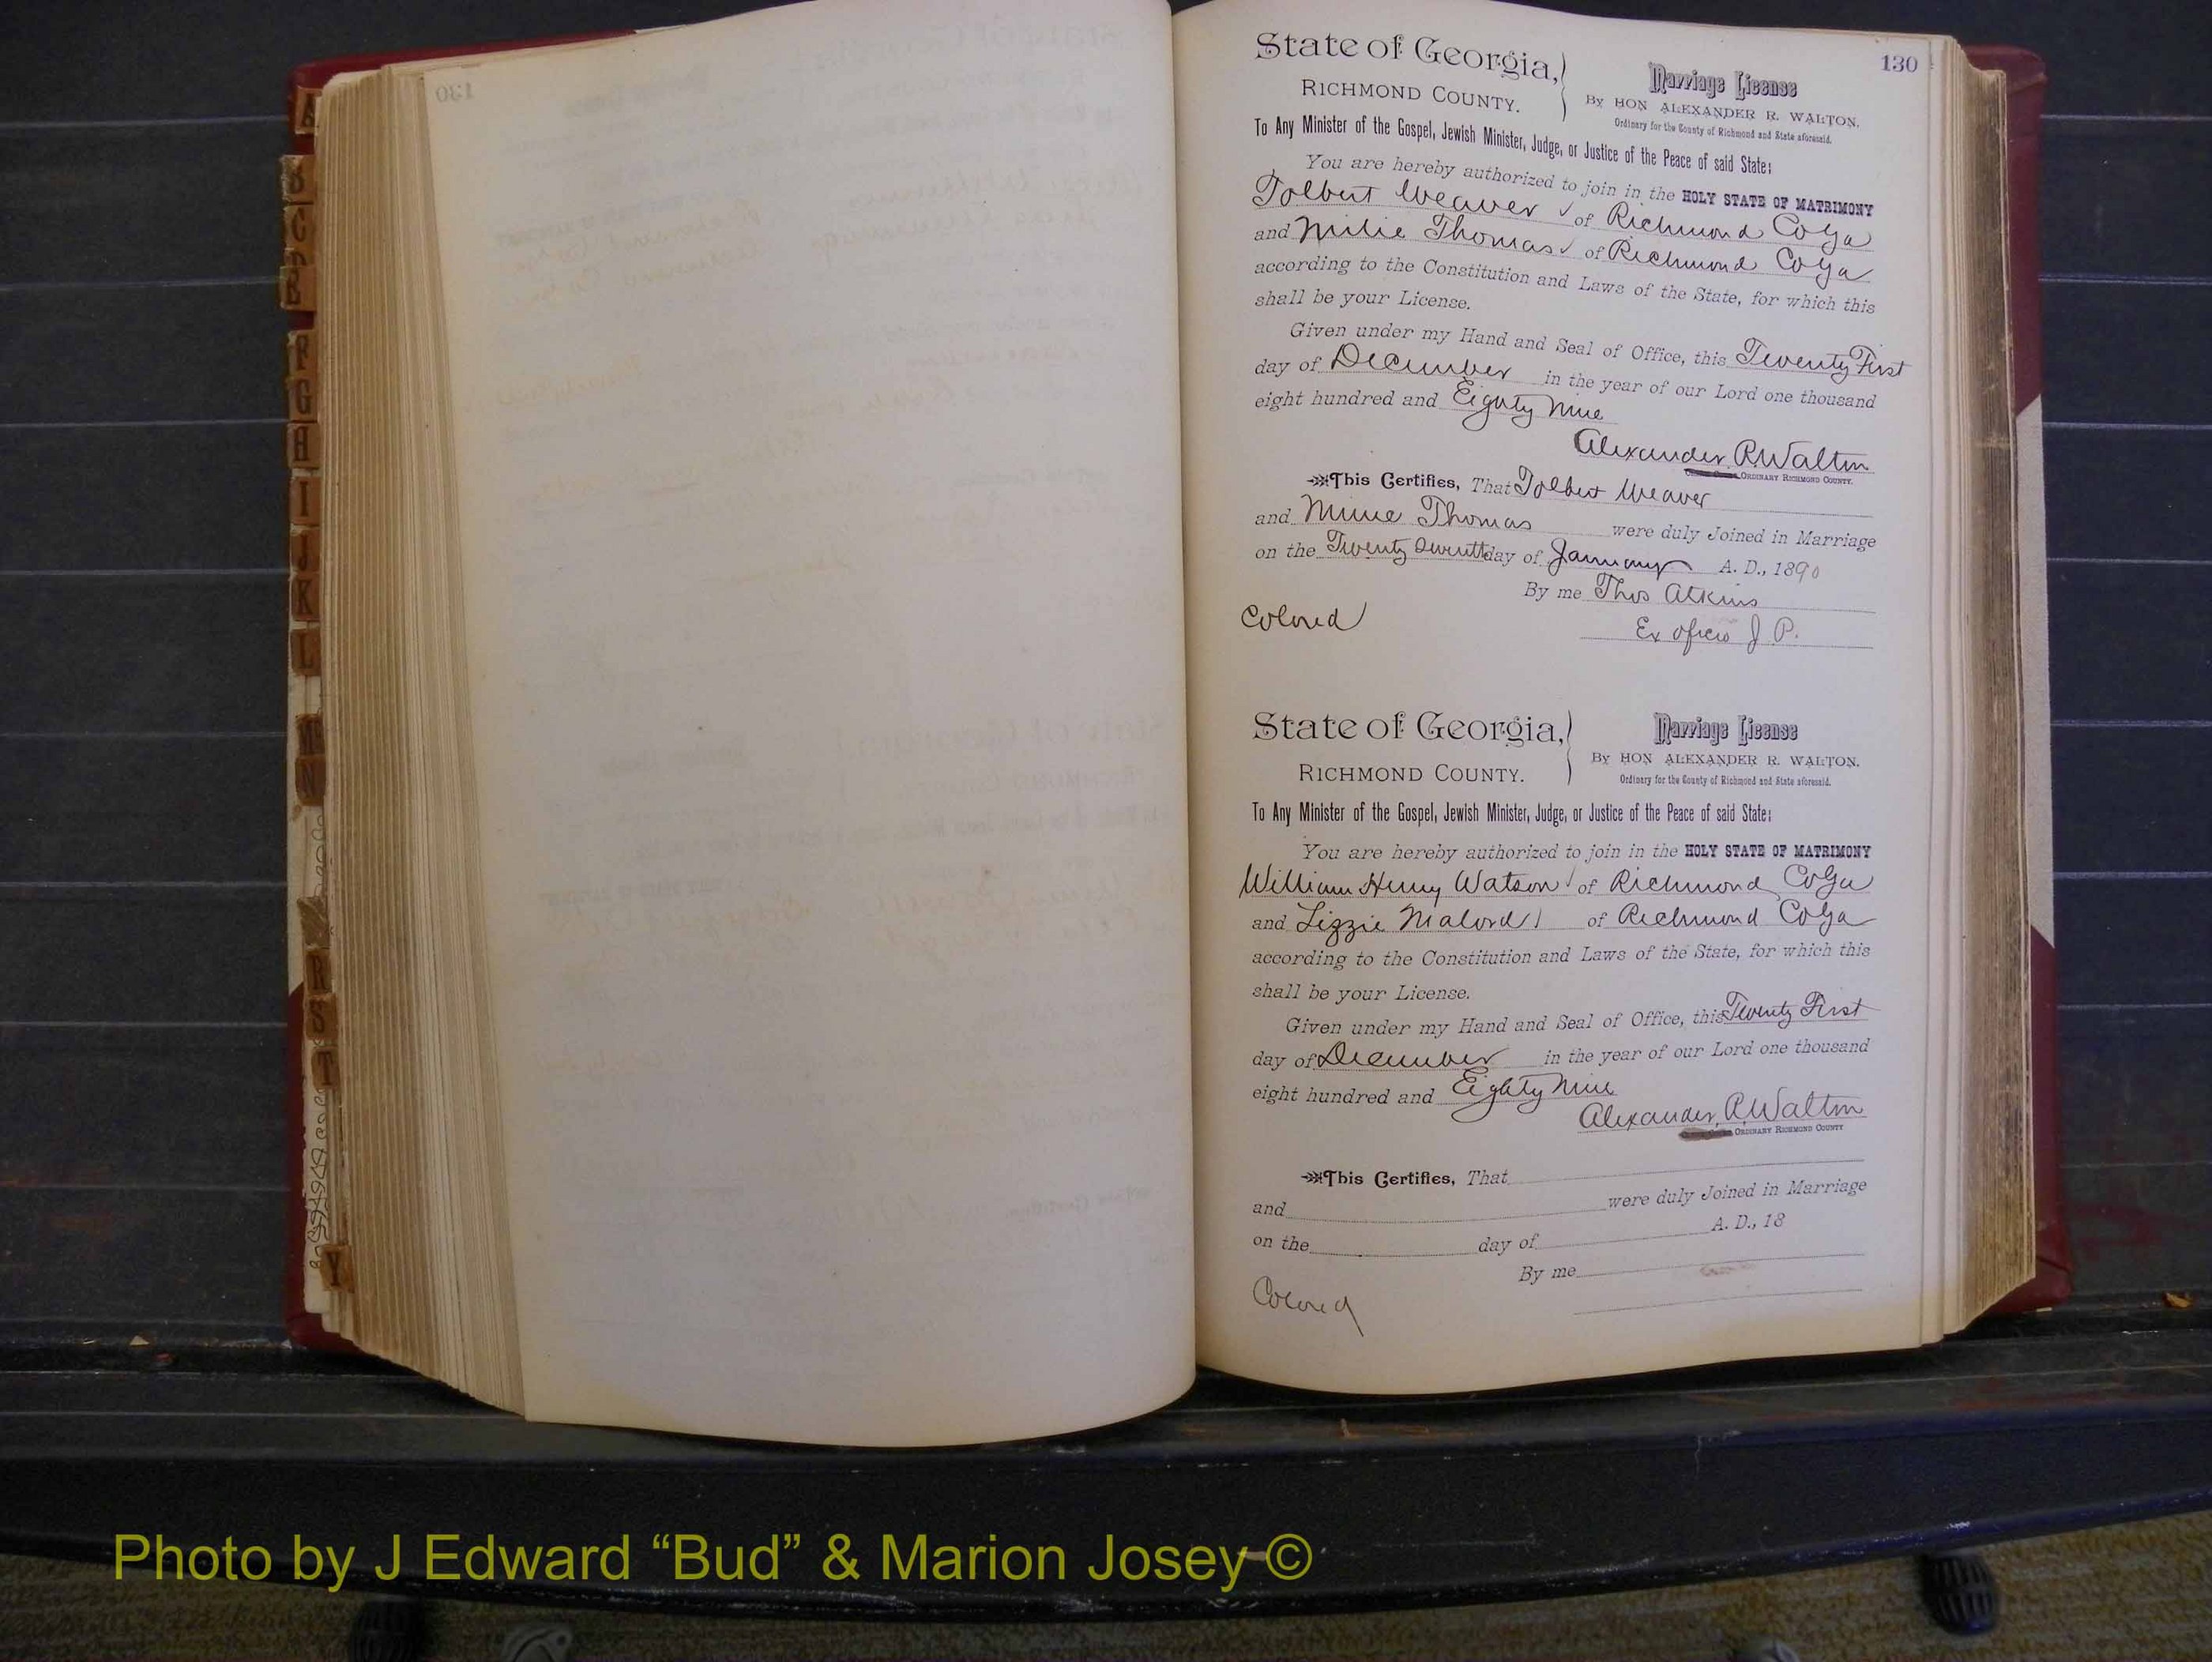 130
State of Georgia,
RICHMOND COUNTY.
Marriage License
By HON ALEXANDER R. WALTON,
Ordinary for the County of Richmond and State aforesaid.
To Any Minister of the Gospel, Jewish Minister, Judge, or Justice of the Peace of said State:
You are hereby authorized to join in the HOLY STATE OF MATRIMONY
Tolbert Weaver of Richmond Co Ga
and Milie Thomas of Richmond Co Ga
according to the Constitution and Laws of the State, for which this
shall be your License.
Given under my Hand and Seal of Office, this Twenty First
day of December in the year of our Lord one thousand
eight hundred and Eighty Nine
Alexander R Walton
ORDINARY RICHMOND COUNTY.
This Certifies, That Tolbert Weaver
and Thomas were duly Joined in Marriage
on the Twenty day of January A. D., 1890
By me Thos Atkins
Colored
Ex oficio J. P.
State of Georgia,
RICHMOND COUNTY.
Marriage License
By HON ALEXANDER R. WALTON,
Ordinary for the County of Richmond and State aforesaid.
To Any Minister of the Gospel, Jewish Minister, Judge, or Justice of the Peace of said State:
You are hereby authorized to join in the HOLY STATE OF MATRIMONY
William Henry Watson of Richmond Co Ga
and Lizzie Malord of Richmond Co Ga
according to the Constitution and Laws of the State, for which this
shall be your License.
Given under my Hand and Seal of Office, this Twenty First
day of December in the year of our Lord one thousand
eight hundred and Eighty Nine
Alexander R Walton
ORDINARY RICHMOND COUNTY
This Certifies, That
and were duly Joined in Marriage
on the day of A. D., 18
By me
Colored
A
B
C
F
G
H
I
J
K
L
Mc
N
R
S
T
Y
Photo by J Edward “Bud” & Marion Josey ©